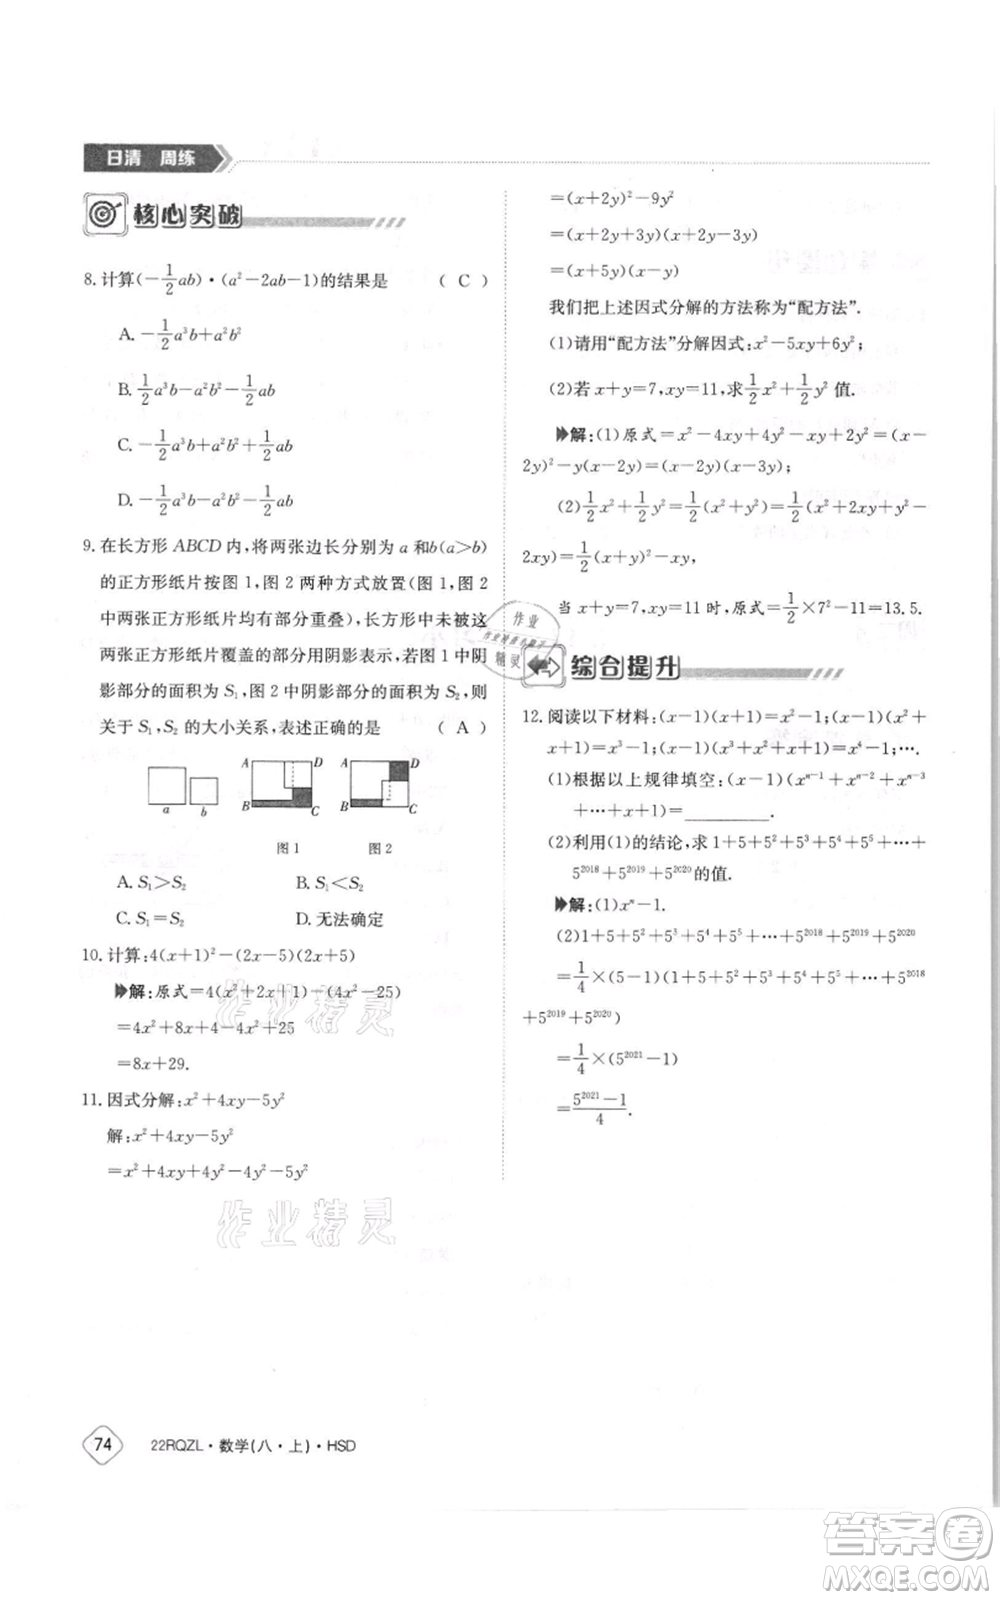 日清 周练
核心突破
8. 计算(-1/2ab)·(a²-2ab-1)的结果是 ( C )
A. -1/2a³b+a²b²
B. 1/2a³b-a²b²-1/2ab
C. -1/2a³b+a²b²+1/2ab
D. -1/2a³b+a²b²-1/2ab
9. 在长方形 ABCD 内,将两张边长分别为 a 和b(a>b)
的正方形纸片按图 1,图 2 两种方式放置(图 1,图 2
中两张正方形纸片均有部分重叠),长方形中未被这
两张正方形纸片覆盖的部分用阴影表示,若图 1 中阴
影部分的面积为 S₁,图 2 中阴影部分的面积为 S₂,则
关于 S₁,S₂ 的大小关系,表述正确的是 ( A )
a b A D B C A D B C
图 1 图 2
A. S₁>S₂ B. S₁<S₂
C. S₁=S₂ D. 无法确定
10. 计算:4(x+1)²-(2x-5)(2x+5)
解:原式=4(x²+2x+1)-(4x²-25)
=4x²+8x+4-4x²+25
=8x+29.
11. 因式分解:x²+4xy-5y²
解:x²+4xy-5y²
=x²+4xy+4y²-4y²-5y²
=(x+2y)²-9y²
=(x+2y+3y)(x+2y-3y)
=(x+5y)(x-y)
我们把上述因式分解的方法称为“配方法”.
(1)请用“配方法”分解因式:x²-5xy+6y²;
(2)若 x+y=7,xy=11,求1/2x²+1/2y² 值.
解:(1)原式=x²-4xy+4y²-xy+2y²=(x-
2y)²-y(x-2y)=(x-2y)(x-3y);
(2)1/2x²+1/2y²=1/2(x²+y²)=1/2(x²+2xy+y²-
2xy)=1/2(x+y)²-xy,
当 x+y=7,xy=11 时,原式=1/2×7²-11=13.5.
综合提升
12. 阅读以下材料:(x-1)(x+1)=x²-1;(x-1)(x²+
x+1)=x³-1;(x-1)(x³+x²+x+1)=x⁴-1;….
(1)根据以上规律填空:(x-1)(xⁿ⁻¹+xⁿ⁻²+xⁿ⁻³
+…+x+1)=________.
(2)利用(1)的结论,求 1+5+5²+5³+5⁴+5⁵+…+
5²⁰¹⁸+5²⁰¹⁹+5²⁰²⁰的值.
解:(1)xⁿ-1.
(2)1+5+5²+5³+5⁴+5⁵+…+5²⁰¹⁸+5²⁰¹⁹+5²⁰²⁰
=1/4×(5-1)(1+5+5²+5³+5⁴+5⁵+…+5²⁰¹⁸
+5²⁰¹⁹+5²⁰²⁰)
=1/4×(5²⁰²¹-1)
=(5²⁰²¹-1)/4.
作业精灵
作业精灵
作业
精灵
74 22RQZL·数学(八·上)·HSD
答案圈
MXQE.COM